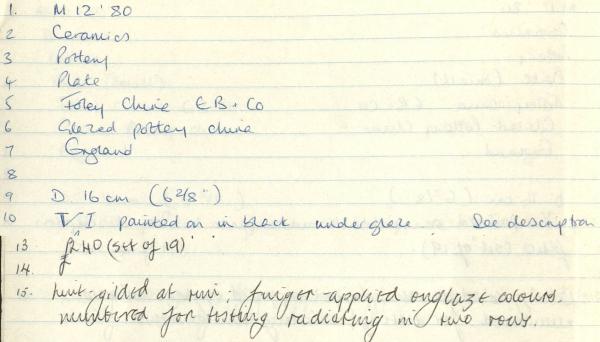 1. M 12' 80
2 Ceramics
3 Pottery
4 Plate
5 Foley China E.B. + Co
6 Glazed pottery china
7 England
8
9 D. 16 cm (6 2/8")
10 V I painted on in black underglaze. See description
13 RHO (set of 19)
14.
15. -gilded at rim; finger-applied onglaze colours.
numbered for testing radiating in two rows.